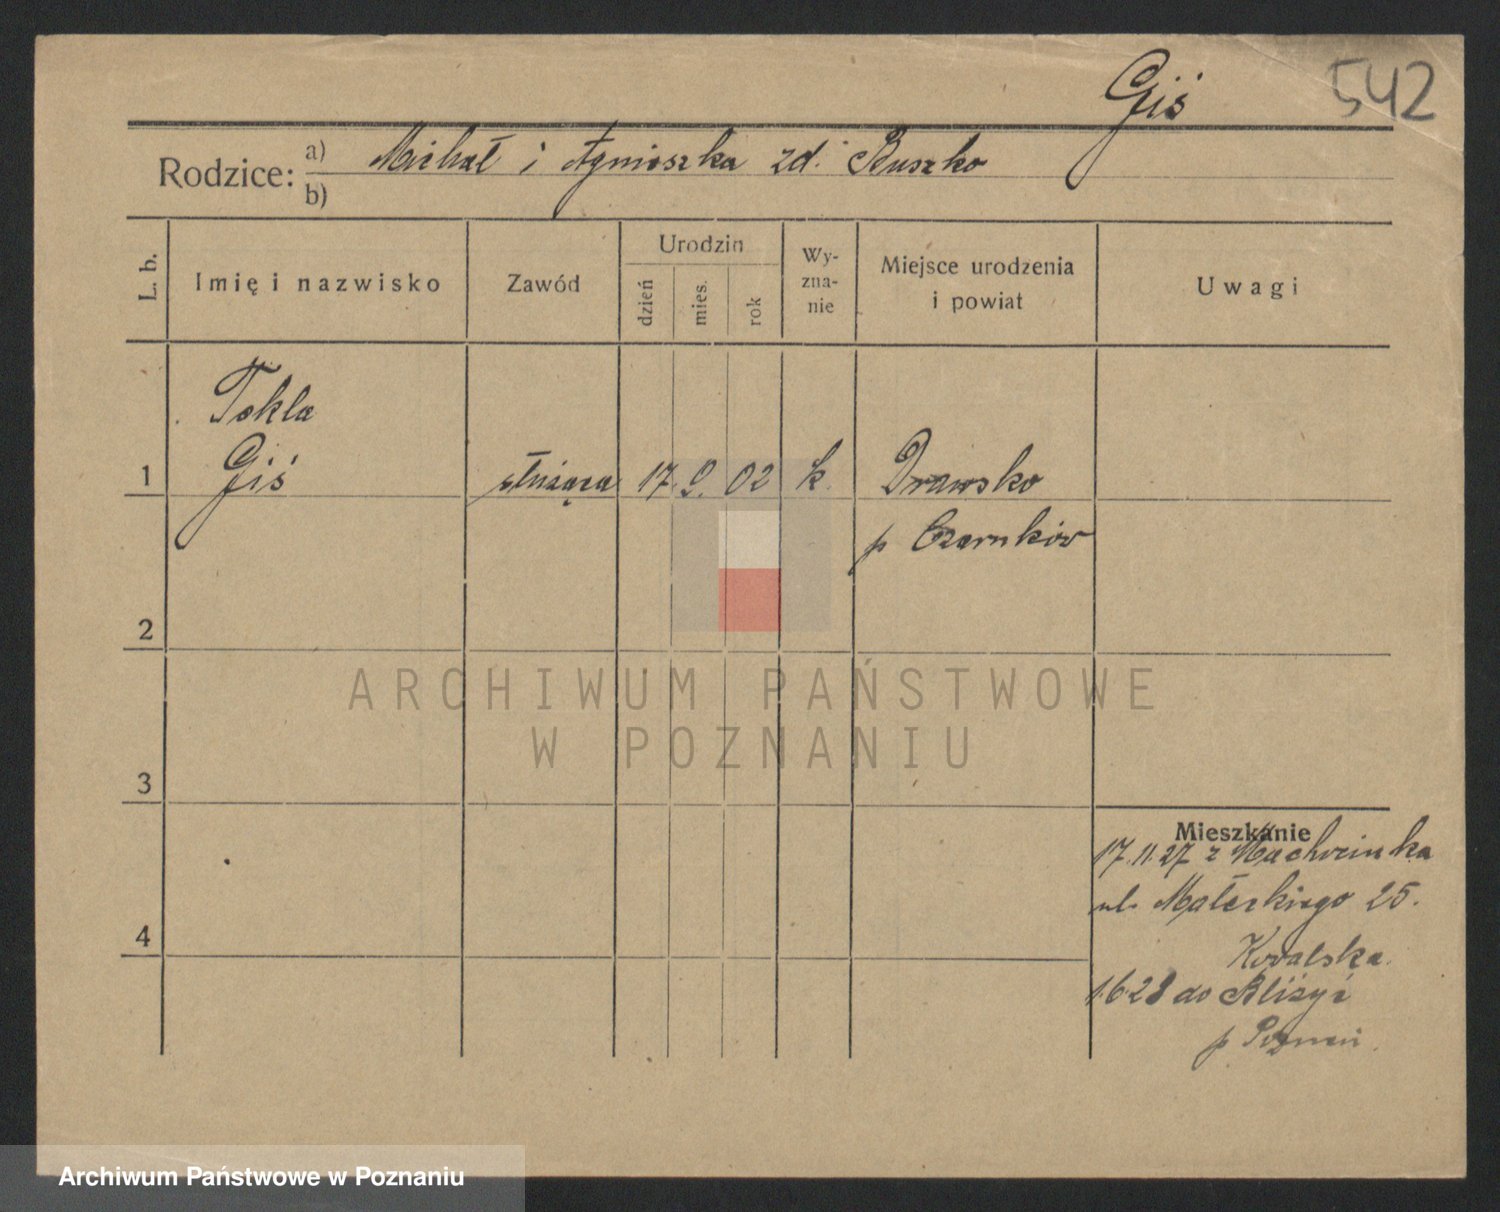 Giś 542
Rodzice: a) Michał i Agnieszka zd. Ruszko
b)
L. b. Imię i nazwisko Zawód Urodzin dzień mies. rok Wy-zna-nie Miejsce urodzenia i powiat Uwagi
Tekla
1 Giś służąca 17. 9. 02 k. Drawsko
p Czarnków
2
ARCHIWUM PAŃSTWOWE
W POZNANIU
3
Mieszkanie
17.11.27 z
ul. Małeckiego 25.
4
Kowalska
1.6.28 do
p Poznań.
Archiwum Państwowe w Poznaniu